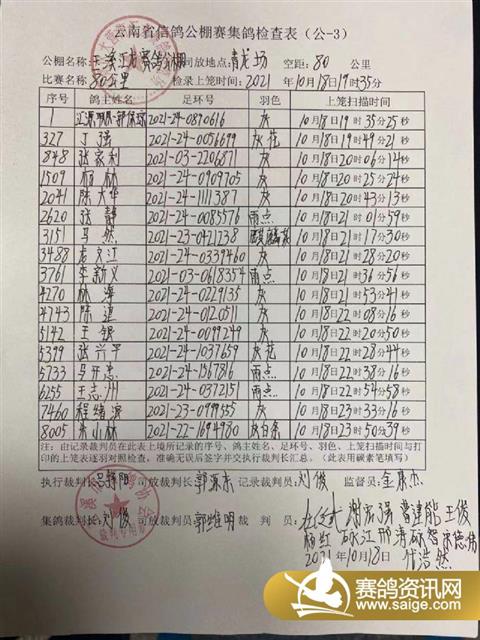 云南省信鸽公棚赛集鸽检查表（公-3）
公棚名称：玉溪江龙赛鸽公棚 司放地点：青龙场 空距：80 公里
比赛名称：80公里 检录上笼时间：2021 年10月18日19时35分
序号 鸽主姓名 足环号 羽色 上笼扫描时间
1 2021-24-0890616 灰 10月18日19时35分25秒
327 丁强 2021-24-0056699 灰花 10月18日19时49分21秒
848 张家利 2021-03-2206871 灰 10月18日20时06分14秒
1509 杨林 2021-24-0909705 灰 10月18日20时25分24秒
2041 陈大华 2021-24-1111387 灰 10月18日20时43分13秒
2620 张静 2021-24-0085576 雨点 10月18日21时01分59秒
3151 马然 2021-23-0421238 10月18日21时17分30秒
3488 龙文江 2021-24-0339460 灰 10月18日21时28分20秒
3761 李新义 2021-03-0618354 雨点 10月18日21时36分56秒
4270 林海 2021-24-0229135 灰 10月18日21时53分41秒
4743 陈谊 2021-24-0120511 灰 10月18日22时08分16秒
5142 王银 2021-24-0099249 灰 10月18日22时20分50秒
5399 张兴平 2021-24-1037659 灰花 10月18日22时28分44秒
5733 马开忠 2021-24-1567816 雨点 10月18日22时38分16秒
6255 王志州 2021-24-0372151 雨点 10月18日22时54分58秒
7460 程绪滨 2021-23-0799355 灰 10月18日23时33分16秒
8005 朱小林 2021-22-1694980 灰白条 10月18日23时50分39秒
注：由记录裁判员在此表上填所记录的序号、鸽主姓名、足环号、羽色、上笼扫描时间与打
印的上笼表逐羽对照检查，准确无误后签字并交执行裁判长汇总。（此表用碳素笔填写）
执行裁判长 司放裁判长 郭源东 记录裁判员：刘俊 监督员：金康杰
集鸽裁判长 刘俊 司放裁判员 郭维明 裁判员： 谢宏强 曹建能 王俊
杨红
2021年10月18日 代浩然
赛鸽资讯网
www.saige.com